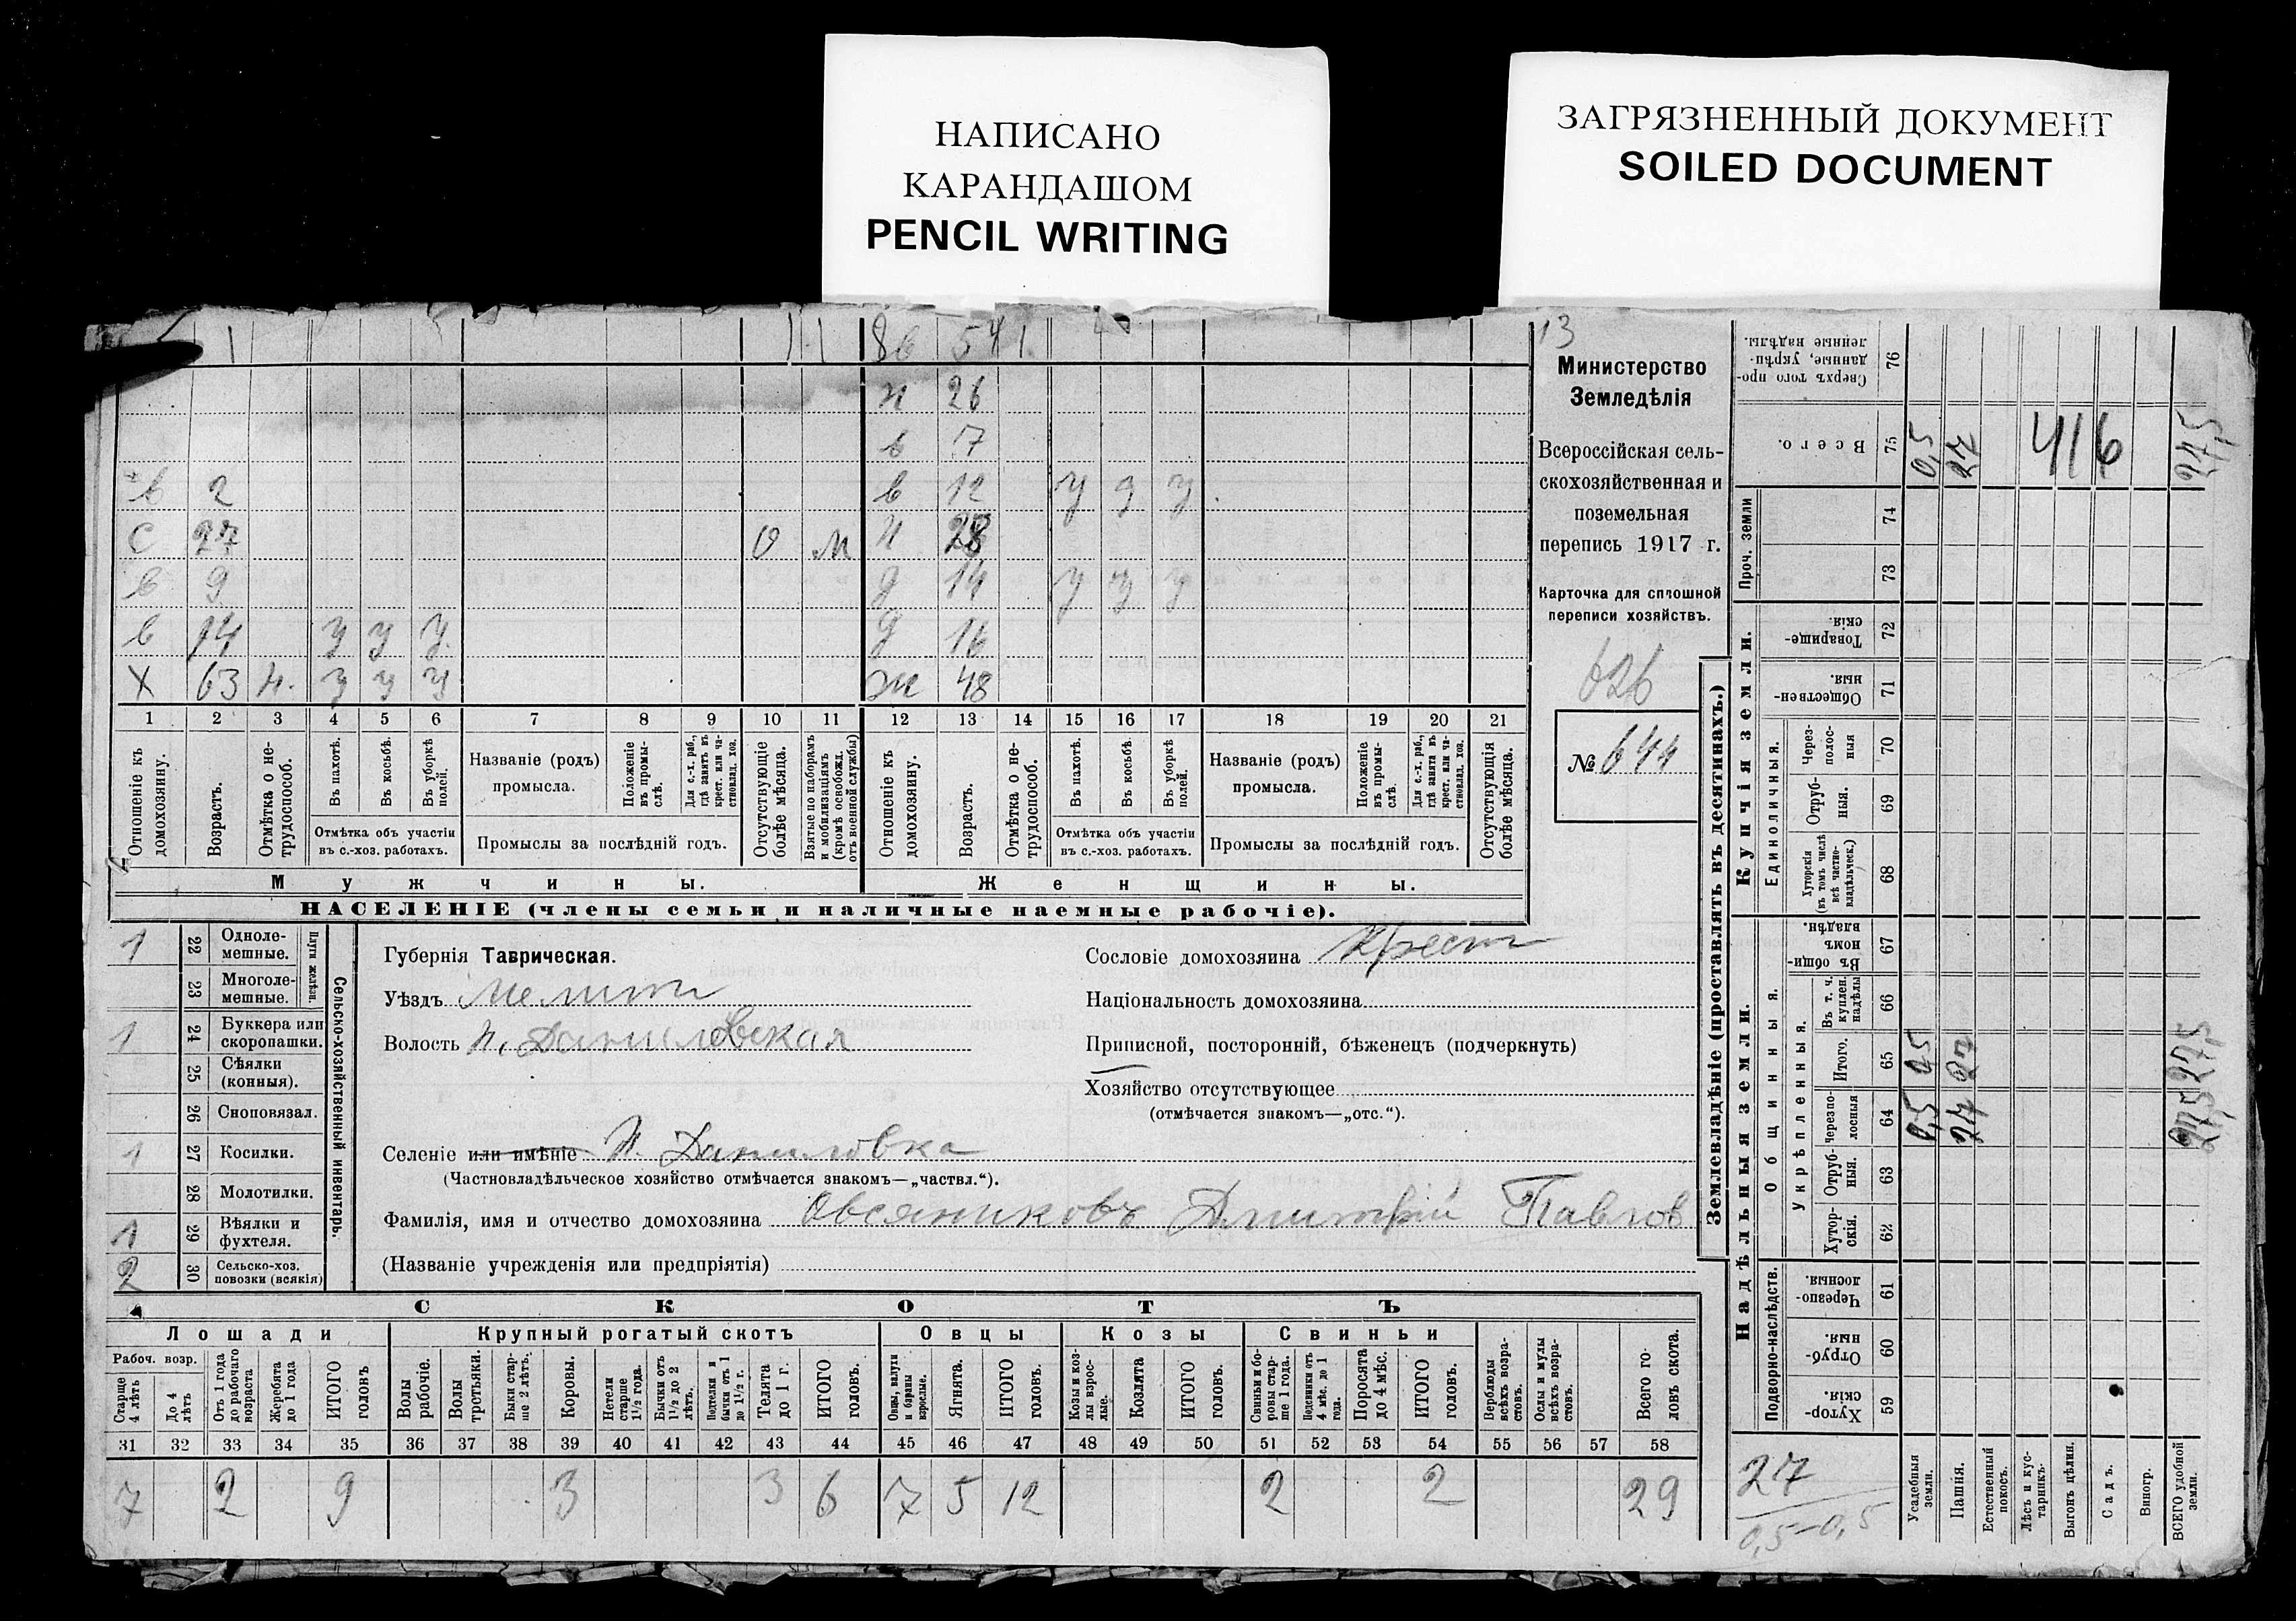 НАПИСАНО
КАРАНДАШОМ
PENCIL WRITING
ЗАГРЯЗНЕННЫЙ ДОКУМЕНТ
SOILED DOCUMENT
1 86 54 1
н 26
в 7
в 2 в 12 у у у
с 27 о м н 28
в 9 д 14 у у у
в 14 у у у д 16
Х 63 н. у у у ж 48
1 2 3 4 5 6 7 8 9 10 11 12 13 14 15 16 17 18 19 20 21
Отношеніе къ домохозяину.
Возрастъ.
Отмѣтка о нетрудоспособ.
Въ пахотѣ.
Въ косьбѣ.
Въ уборкѣ полей.
Отмѣтка объ участіи въ с.-хоз. работахъ.
Названіе (родъ) промысла.
Положеніе въ промыслѣ.
Для с.-х. раб., гдѣ занятъ въ крест. или частновлад. хоз.
Промыслы за послѣдній годъ.
Отсутствующіе болѣе мѣсяца.
Взятые по наборамъ и мобилизаціямъ (кромѣ освобожд. отъ военной службы)
Отношеніе къ домохозяину.
Возрастъ.
Отмѣтка о нетрудоспособ.
Въ пахотѣ.
Въ косьбѣ.
Въ уборкѣ полей.
Отмѣтка объ участіи въ с.-хоз. работахъ.
Названіе (родъ) промысла.
Положеніе въ промыслѣ.
Для с.-х. раб., гдѣ занята въ крест. или частновлад. хоз.
Промыслы за послѣдній годъ.
Отсутствующія болѣе мѣсяца.
Мужчины.
Женщины.
НАСЕЛЕНІЕ (члены семьи и наличные наемные рабочіе).
13
Министерство
Земледѣлія
Всероссійская сель-
скохозяйственная и
поземельная
перепись 1917 г.
Карточка для сплошной
переписи хозяйствъ.
626
№ 644
Сельско-хозяйственный инвентарь.
Плуги желѣзн.
1 22 Одноле-мешные.
23 Многоле-мешные.
1 24 Буккера или скоропашки.
25 Сѣялки (конныя).
26 Сноповязал.
1 27 Косилки.
28 Молотилки.
1 29 Вѣялки и фухтеля.
2 30 Сельско-хоз. повозки (всякія)
Губернія Таврическая.
Уѣздъ Мелит
Волость Н. Даниловская
Селеніе или имѣніе Н. Даниловка
(Частновладѣльческое хозяйство отмѣчается знакомъ—„частвл.“).
Фамилія, имя и отчество домохозяина Овсяниковъ Дмитрій Павлов
(Названіе учрежденія или предпріятія)
Сословіе домохозяина Крест
Національность домохозяина
Приписной, посторонній, бѣженецъ (подчеркнуть)
Хозяйство отсутствующее
(отмѣчается знакомъ—„отс.“).
СКОТЪ
Лошади
Крупный рогатый скотъ
Овцы
Козы
Свиньи
Рабоч. возр.
Старше 4 лѣтъ
До 4 лѣтъ
Отъ 1 года до рабочаго возраста
Жеребята до 1 года
ИТОГО головъ
Волы рабочіе.
Волы третьяки.
Быки старше 2 лѣтъ.
Коровы.
Нетели старше 1½ года.
Бычки отъ 1½ до 2 лѣтъ.
Подтелки и бычки отъ 1 до 1½ г.
Телята до 1 г.
ИТОГО головъ.
Овцы, валухи и бараны взрослые.
Ягнята.
ИТОГО головъ.
Козы и козлы взрослые.
Козлята
ИТОГО головъ.
Свиньи и боровы старше 1 года.
Подсвинки отъ 4 мѣс. до 1 года.
Поросята до 4 мѣс.
ИТОГО головъ.
Верблюды всѣхъ возрастовъ.
Ослы и мулы всѣхъ возрастовъ.
Всего головъ скота.
31 32 33 34 35 36 37 38 39 40 41 42 43 44 45 46 47 48 49 50 51 52 53 54 55 56 57 58
7 2 9 3 3 6 7 5 12 2 2 29
Землевладѣніе (проставлять въ десятинахъ.)
Купчія земли.
Надѣльныя земли.
76 Сверхъ того проданные, укрѣпленные надѣлы.
75 Всего. 0,5 27 416 27,5
Проч. земли
74
73
72 Товарищескія.
71 Общественныя.
Единоличныя.
70 Черезполосныя
69 Отрубныя.
68 Хуторскія (въ томъ числѣ всѣ частновладѣльческ.)
Общинныя.
67 Въ общинномъ владѣн.
Укрѣпленныя.
66 Въ т. ч. куплен. надѣлы
65 Итого. 0,5 27 27,5
64 Черезполосныя 0,5 27 27,5
63 Отрубныя.
62 Хуторскія.
Подворно-наслѣдств.
61 Черезполосныя
60 Отрубныя.
59 Хуторскія.
27
0,5-0,5
Усадебныя земли.
Пашня.
Естественный покосъ.
Лѣсъ и кустарникъ.
Выгонъ цѣлин.
Садъ.
Виногр.
ВСЕГО удобной земли.